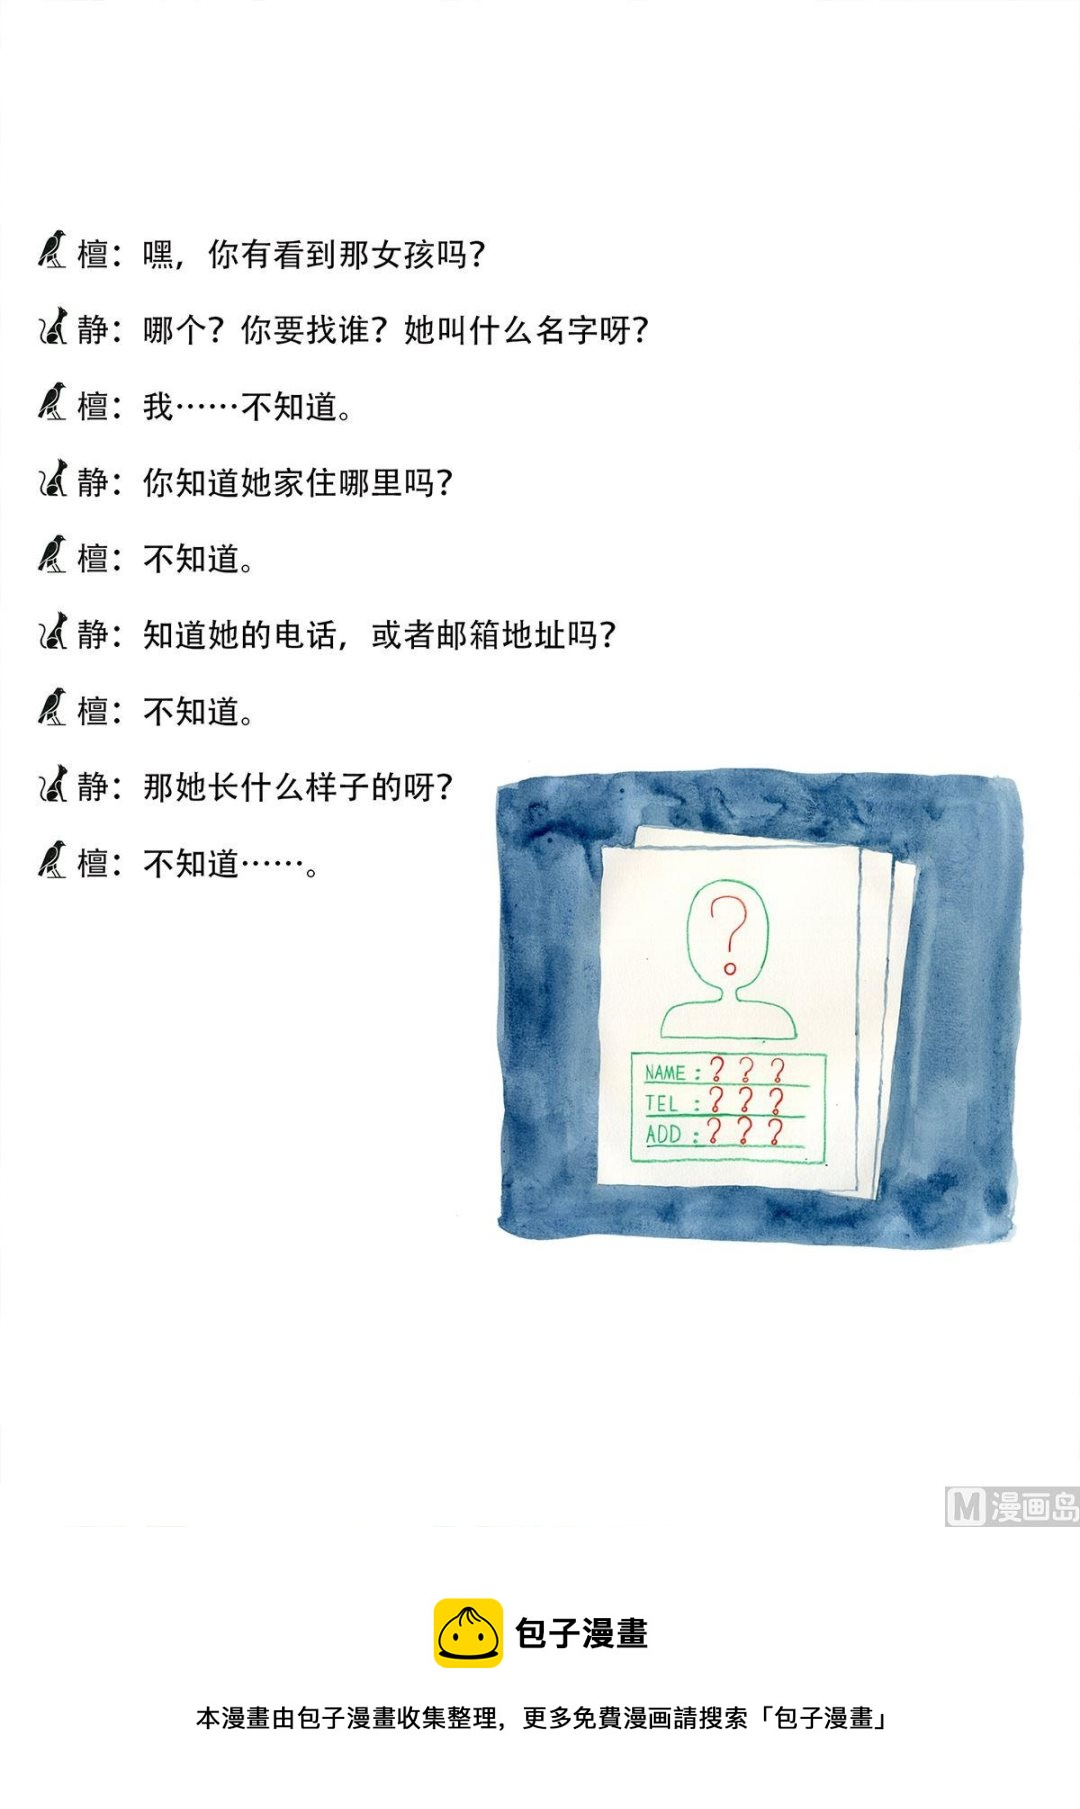 檀：嘿，你有看到那女孩吗？
静：哪个？你要找谁？她叫什么名字呀？
檀：我……不知道。
静：你知道她家住哪里吗？
檀：不知道。
静：知道她的电话，或者邮箱地址吗？
檀：不知道。
静：那她长什么样子的呀？
檀：不知道……。
?
NAME：? ? ?
TEL：? ? ?
ADD：? ? ?
M 漫画岛
包子漫畫
本漫畫由包子漫畫收集整理，更多免費漫画請搜索「包子漫畫」